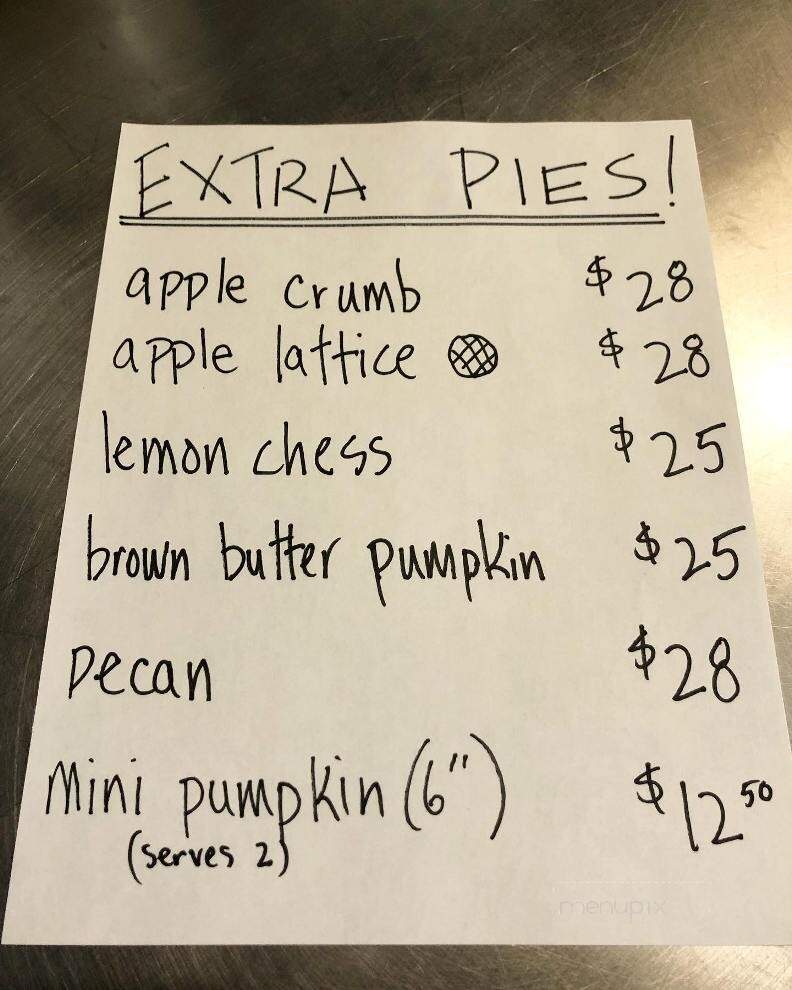 EXTRA PIES!
apple crumb $28
apple lattice $28
lemon chess $25
brown butter pumpkin $25
pecan $28
mini pumpkin (6") $12 50
(serves 2)
menupix